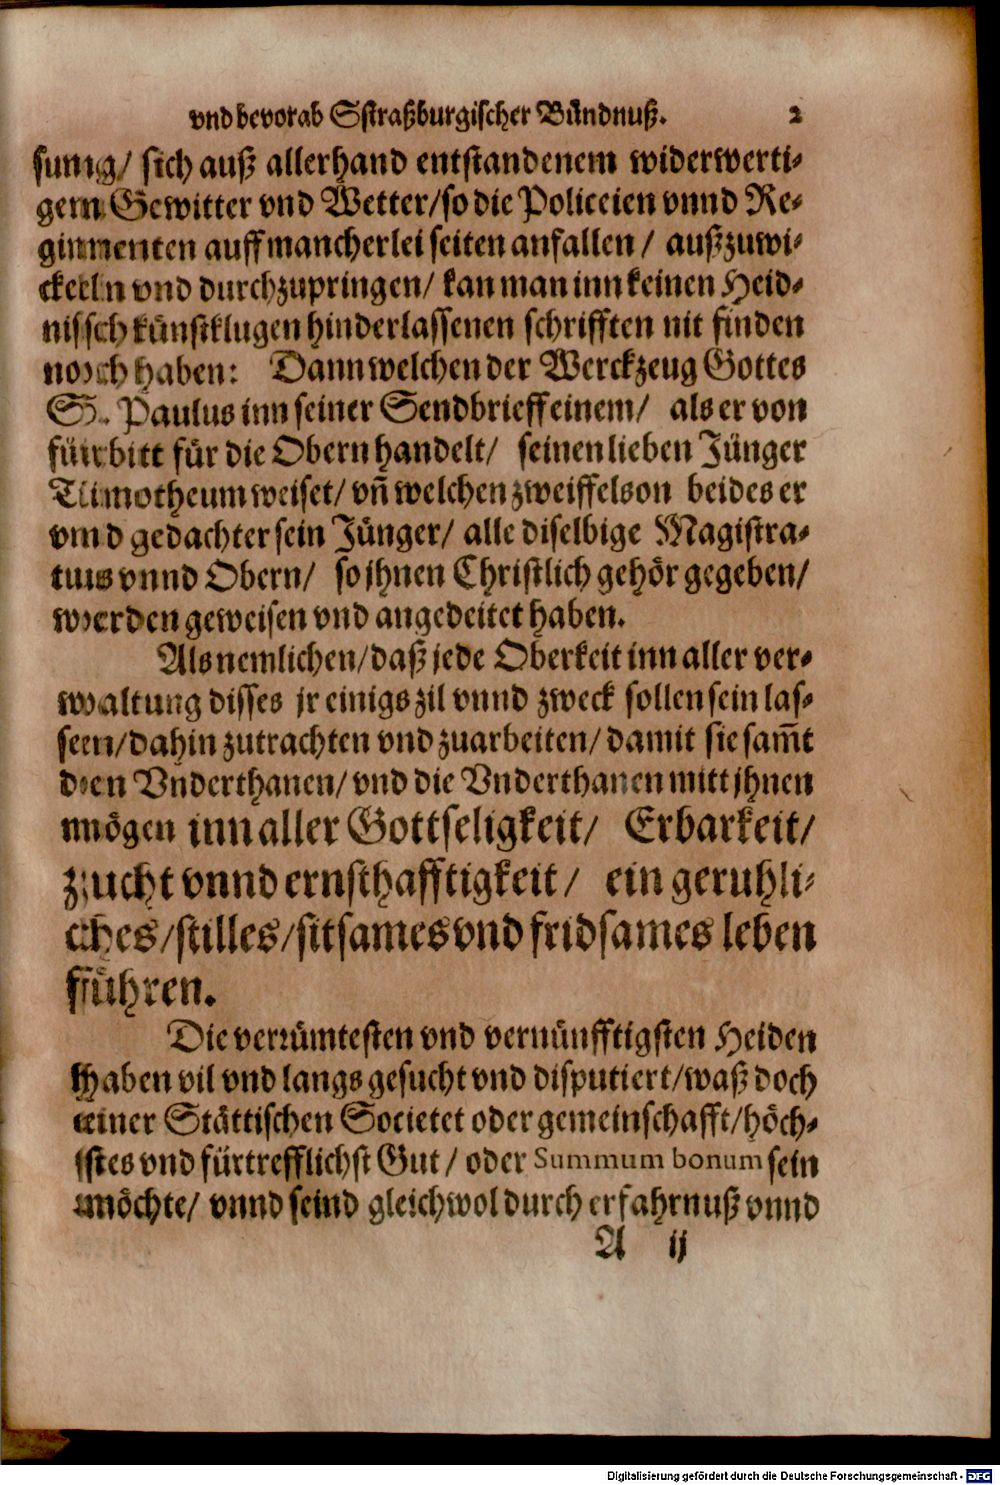 vnd bevorab Sstraßburgischer Bündnuß. 2
sung/ sich auß allerhand entstandenem widerwerti-
gem Gewitter vnd Wetter/so die Policeien vnnd Re-
gimenten auff mancherlei seiten anfallen/ außzuwi-
ckeln vnd durchzupringen/ kan man inn keinen Heid-
nisch künstklugen hinderlassenen schrifften nit finden
noch haben: Dann welchen der Werckzeug Gottes
S. Paulus inn seiner Sendbrieff einem/ als er von
fürbitt für die Obern handelt/ seinen lieben Jünger
Timotheum weiset/ vñ welchen zweiffelson beides er
vnd gedachter sein Jünger/ alle diselbige Magistra-
tus vnnd Obern/ so jhnen Christlich gehör gegeben/
werden geweisen vnd angedeitet haben.
Als nemlichen/daß jede Oberkeit inn aller ver-
waltung disses jr einigs zil vnnd zweck sollen sein las-
sen/dahin zutrachten vnd zuarbeiten/damit sie sam̃t
den Vnderthanen/ vnd die Vnderthanen mitt jhnen
mögen inn aller Gottseligkeit/ Erbarkeit/
zucht vnnd ernsthafftigkeit/ ein geruhli-
ches/stilles/sitsames vnd fridsames leben
führen.
Die verrümtesten vnd vernünfftigsten Heiden
haben vil vnd langs gesucht vnd disputiert/waß doch
einer Stättischen Societet oder gemeinschafft/höch-
stes vnd fürtrefflichst Gut/ oder Summum bonum sein
möchte/ vnnd seind gleichwol durch erfahrnuß vnnd
A ij
Digitalisierung gefördert durch die Deutsche Forschungsgemeinschaft - DFG